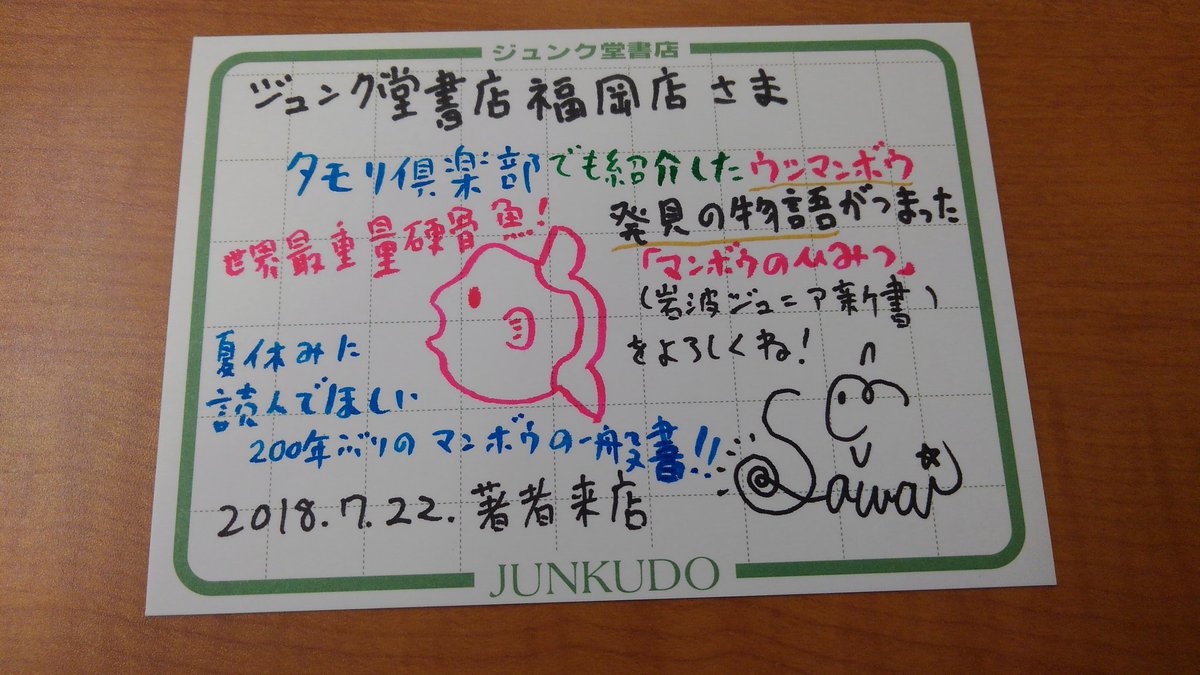 ジュンク堂書店
ジュンク堂書店福岡店さま
タモリ倶楽部でも紹介したウシマンボウ
発見の物語がつまった
「マンボウのひみつ」
(岩波ジュニア新書)
をよろしくね!
世界最重量硬骨魚!
夏休みに
読んでほしい
200年ぶりのマンボウの一般書!!
Sawai
2018.7.22. 著者来店
JUNKUDO